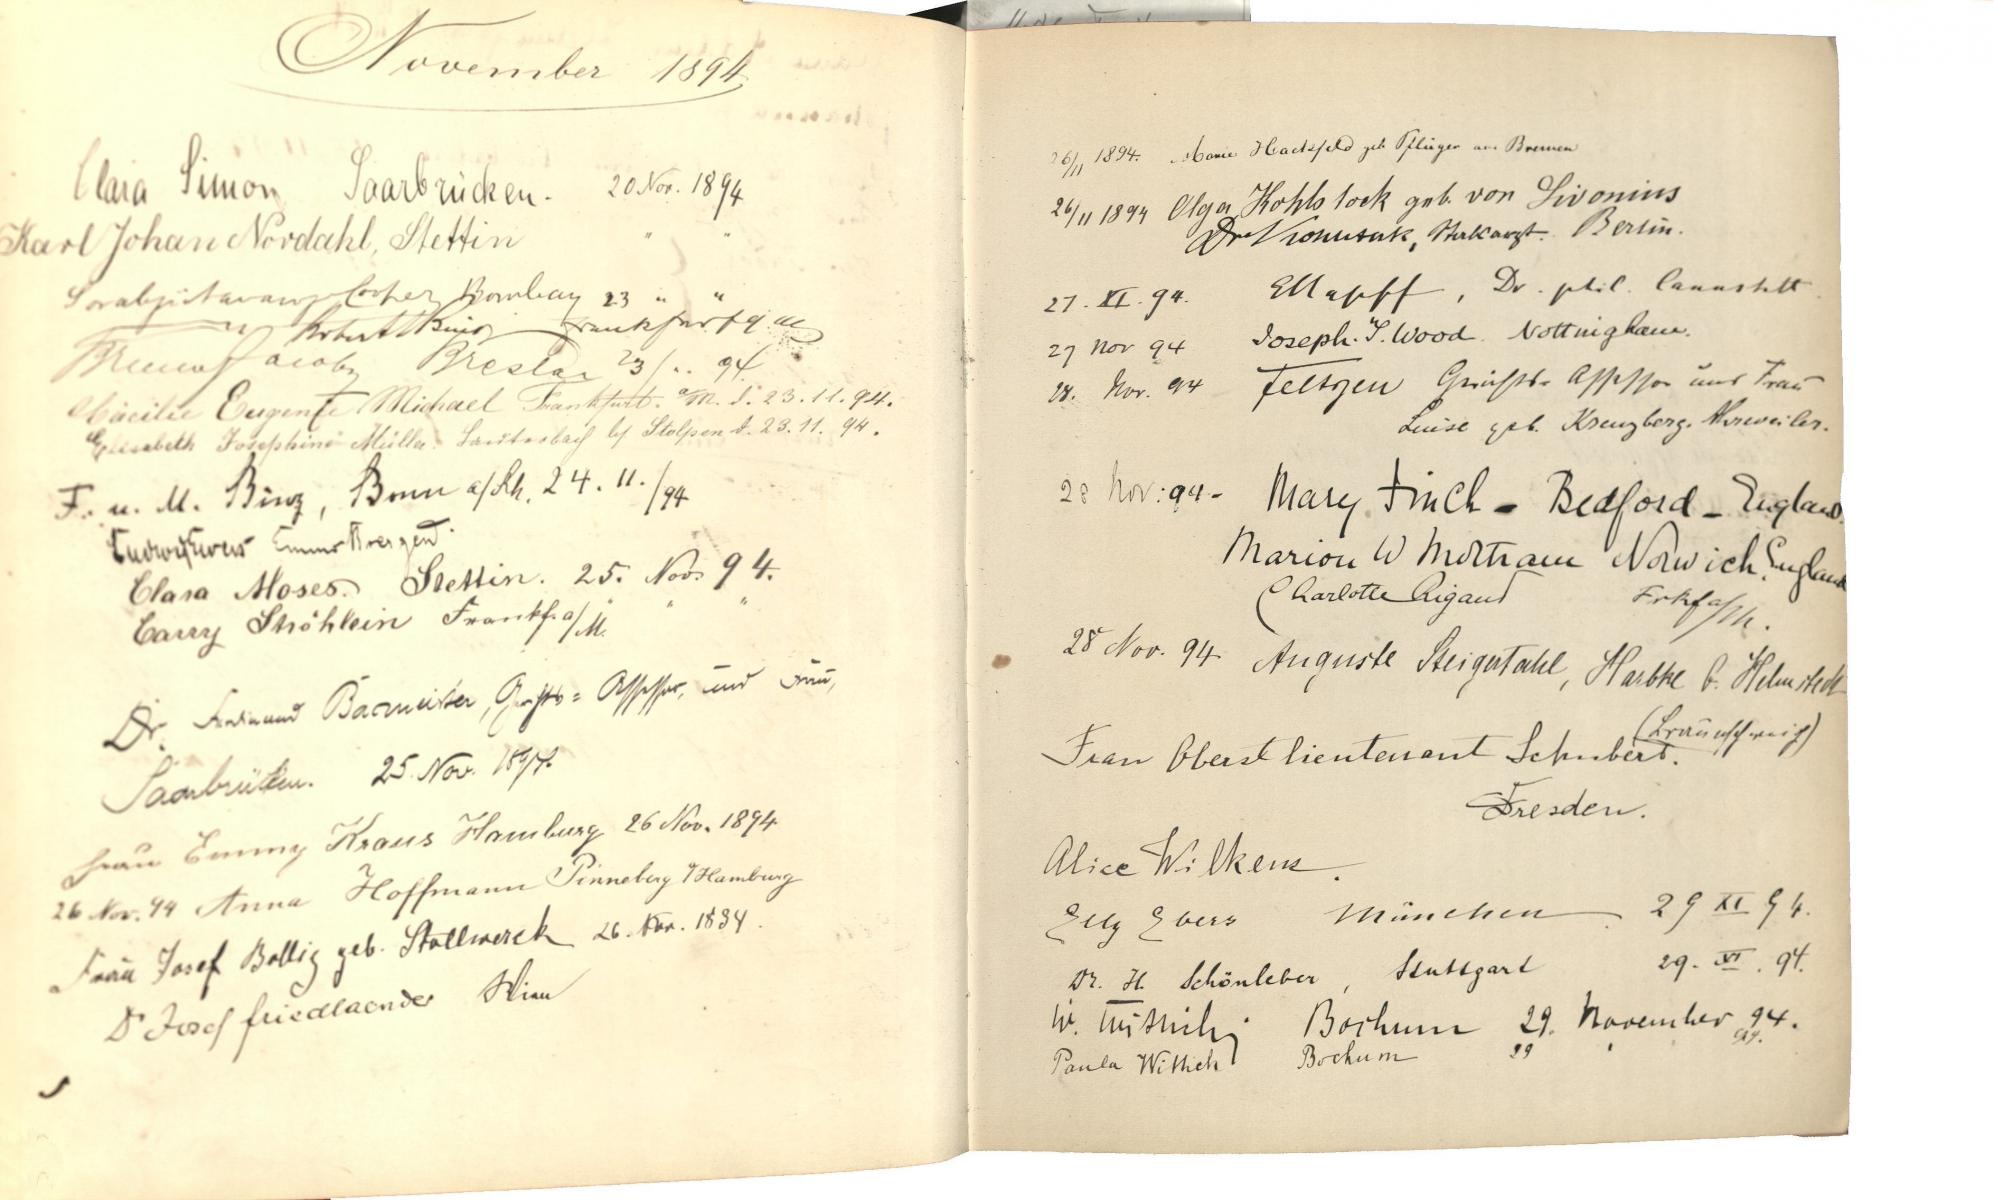 November 1894
Clara Simon Saarbrücken. 20 Nov. 1894
Karl Johan Nordahl, Stettin " "
Bombay 23 " "
Robert Frankfurt a/M
Bruno Jacoby Breslau 23/ .. 94
Cäcilie Eugenie Michael Frankfurt a/M. d. 23.11.94.
Elisabeth Josephine Müller Stolpen d. 23.11. 94.
F. u. M. Binz, Bonn a/Rh. 24. 11./94
Emma
Clara Moses. Stettin. 25. Nov. 94.
Carry Ströhlein Frankf. a/M. " "
Dr. Ferdinand Bacmeister, Gerichts= Assessor, und Frau,
Saarbrücken. 25. Nov. 1894.
Frau Emmy Kraus Hamburg 26 Nov. 1894
26 Nov. 94 Anna Hoffmann Pinneberg b/Hamburg
Frau Josef Bollig geb. Stollwerck 26. Nov. 1894.
Dr Josef Friedlaender Wien
26/11 1894. Marie Hackfeld geb. Pflüger aus Bremen
26/11 1894 Olga Kohlstock geb. von Livonius
Dr. Kohlstock, Stabsarzt. Berlin.
27. XI. 94. E Mapff, Dr. phil. Cannstatt
27 Nov 94 Joseph. S. Wood. Nottingham.
28. Nov. 94 Feltgen Gerichts= Assessor und Frau
Luise geb. Kreuzberg. Ahrweiler.
28 Nov: 94 - Mary Finch - Bedford - England.
Marion W Mottram Norwich. England
Charlotte Rigaud Frkf a/M.
28 Nov. 94 Auguste Steigertahl, Harbke b. Helmstedt
(Braunschweig)
Frau Oberstlieutenant Schubert.
Dresden.
Alice Wilkens.
Elly Evers München 29 XI 94.
Dr. H. Schönleber, Stuttgart 29. XI. 94.
W. Bochum 29. November 94.
Paula Wittich Bochum 29 " 94.